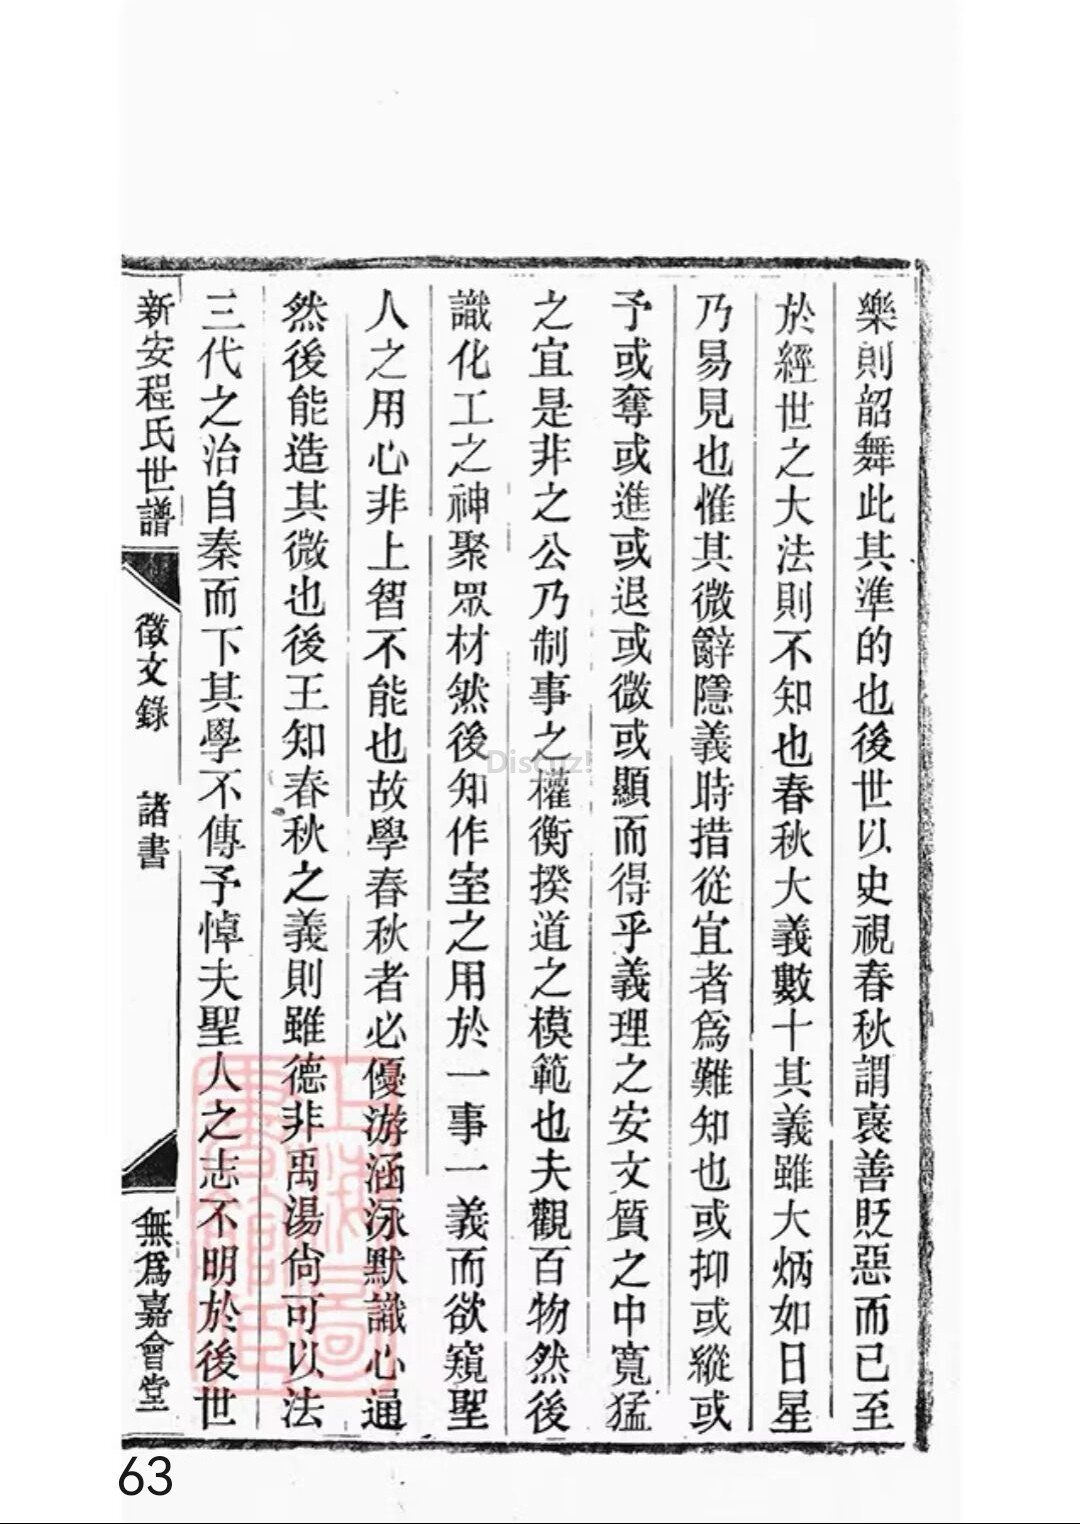 樂則韶舞此其準的也後世以史視春秋謂褒善貶惡而已至
於經世之大法則不知也春秋大義數十其義雖大炳如日星
乃易見也惟其微辭隱義時措從宜者爲難知也或抑或縱或
予或奪或進或退或微或顯而得乎義理之安文質之中寬猛
之宜是非之公乃制事之權衡揆道之模範也夫觀百物然後
識化工之神聚眾材然後知作室之用於一事一義而欲窺聖
人之用心非上智不能也故學春秋者必優游涵泳默識心通
然後能造其微也後王知春秋之義則雖德非禹湯尚可以法
三代之治自秦而下其學不傳予悼夫聖人之志不明於後世
新安程氏世譜
徵文錄 諸書
無爲嘉會堂
上海圖書館藏
Discuz!
63